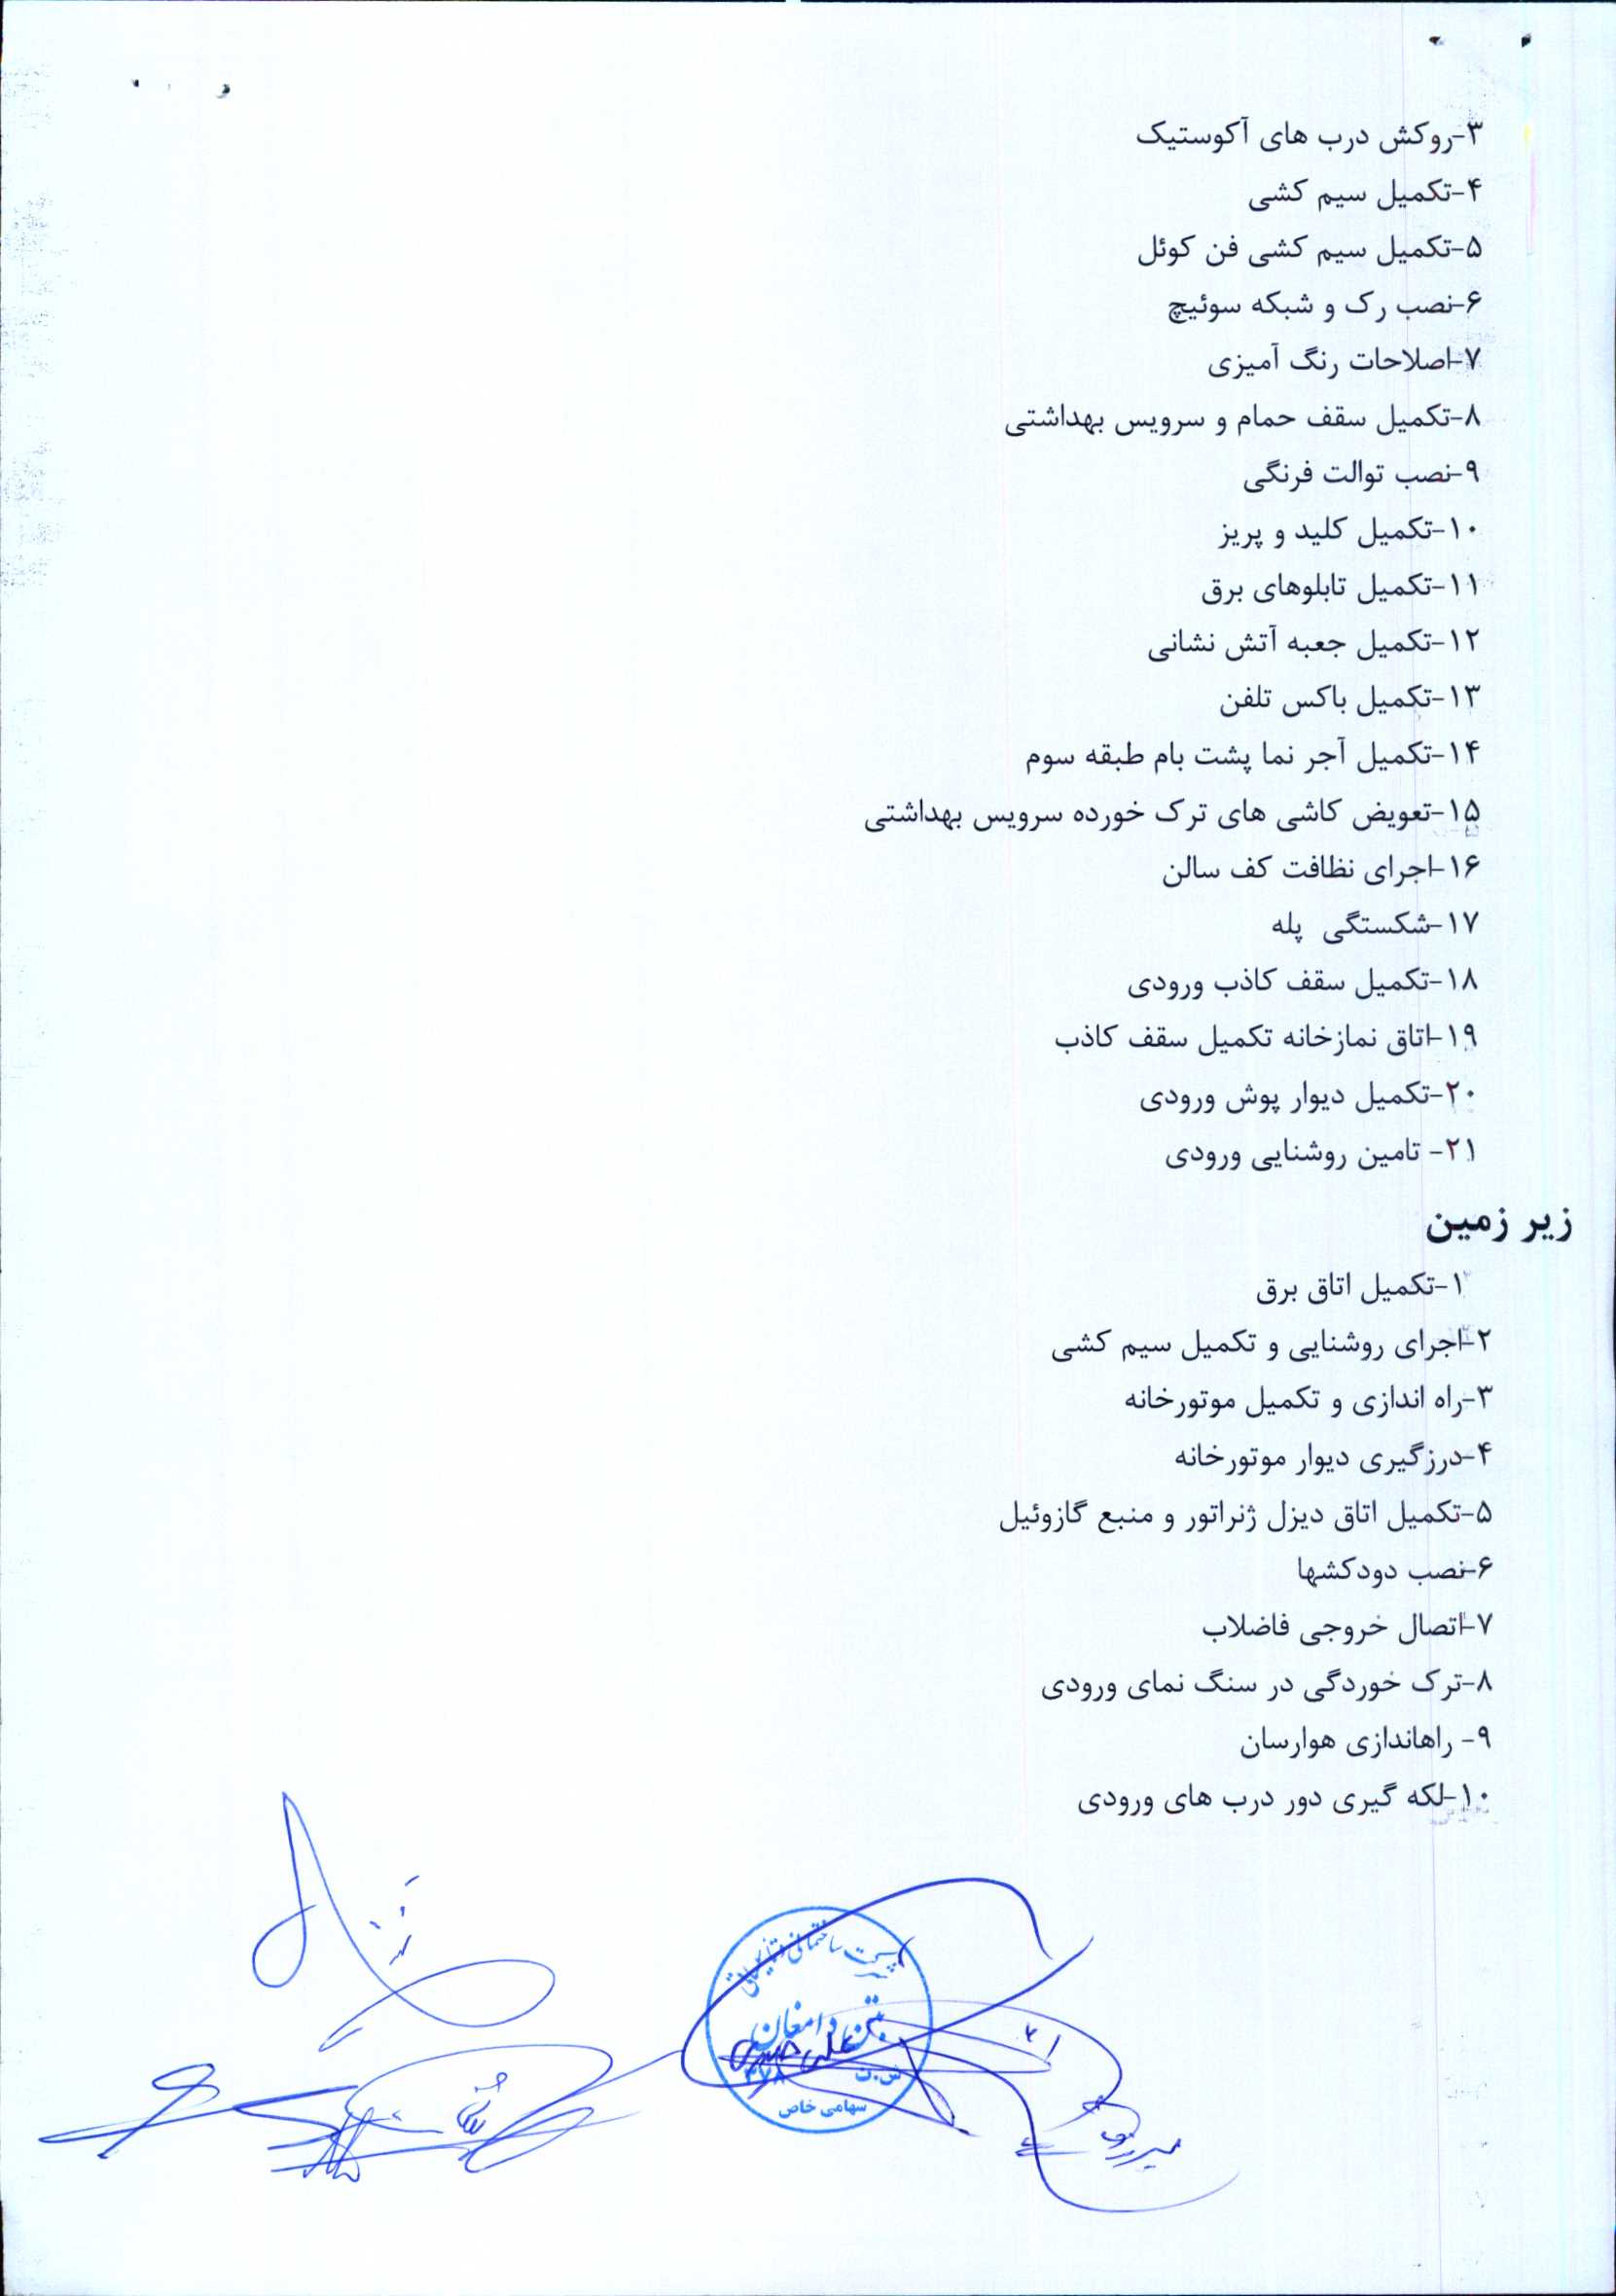 ۳-روکش درب های آکوستیک
۴-تکمیل سیم کشی
۵-تکمیل سیم کشی فن کوئل
۶-نصب رک و شبکه سوئیچ
۷-اصلاحات رنگ آمیزی
۸-تکمیل سقف حمام و سرویس بهداشتی
۹-نصب توالت فرنگی
۱۰-تکمیل کلید و پریز
۱۱-تکمیل تابلوهای برق
۱۲-تکمیل جعبه آتش نشانی
۱۳-تکمیل باکس تلفن
۱۴-تکمیل آجر نما پشت بام طبقه سوم
۱۵-تعویض کاشی های ترک خورده سرویس بهداشتی
۱۶-اجرای نظافت کف سالن
۱۷-شکستگی پله
۱۸-تکمیل سقف کاذب ورودی
۱۹-اتاق نمازخانه تکمیل سقف کاذب
۲۰-تکمیل دیوار پوش ورودی
۲۱- تامین روشنایی ورودی
زیر زمین
۱-تکمیل اتاق برق
۲-اجرای روشنایی و تکمیل سیم کشی
۳-راه اندازی و تکمیل موتورخانه
۴-درزگیری دیوار موتورخانه
۵-تکمیل اتاق دیزل ژنراتور و منبع گازوئیل
۶-نصب دودکشها
۷-اتصال خروجی فاضلاب
۸-ترک خوردگی در سنگ نمای ورودی
۹- راهاندازی هوارسان
۱۰-لکه گیری دور درب های ورودی
شرکت ساختمانی
بتن دامغان
سهامی خاص